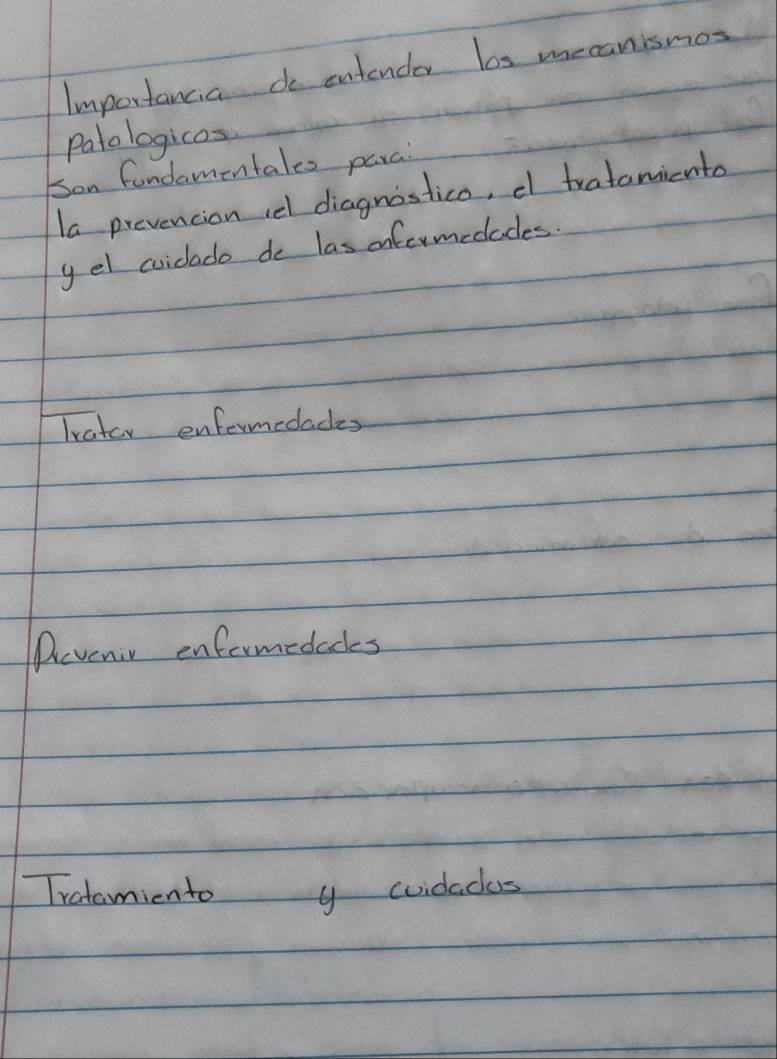 Importancia de entender los mecanismos
patologicos.
Son fundamentales para:
la prevencion, el diagnóstico, el tratamiento
y el cuidado de las enfermedades.
Tratar enfermedades
Prevenir enfermedades
Tratamiento y cuidados